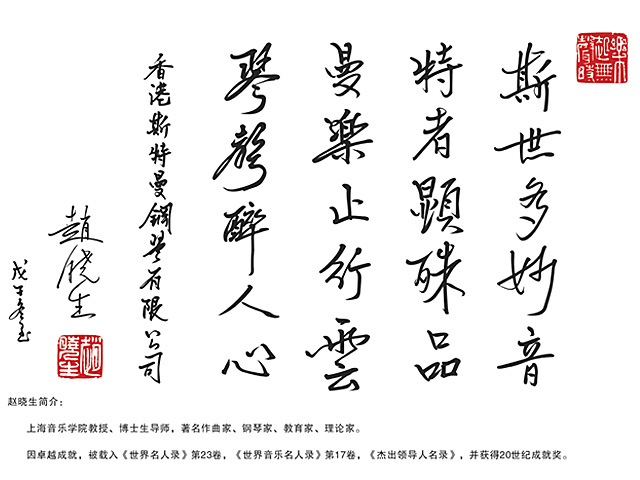 斯世多妙音
特者顯殊品
曼樂止行雲
琴聲醉人心
香港斯特曼鋼琴有限公司
趙曉生
戊子冬至
趙曉生
赵晓生简介：
上海音乐学院教授、博士生导师，著名作曲家、钢琴家、教育家、理论家。
因卓越成就，被载入《世界名人录》第23卷，《世界音乐名人录》第17卷，《杰出领导人名录》，并获得20世纪成就奖。